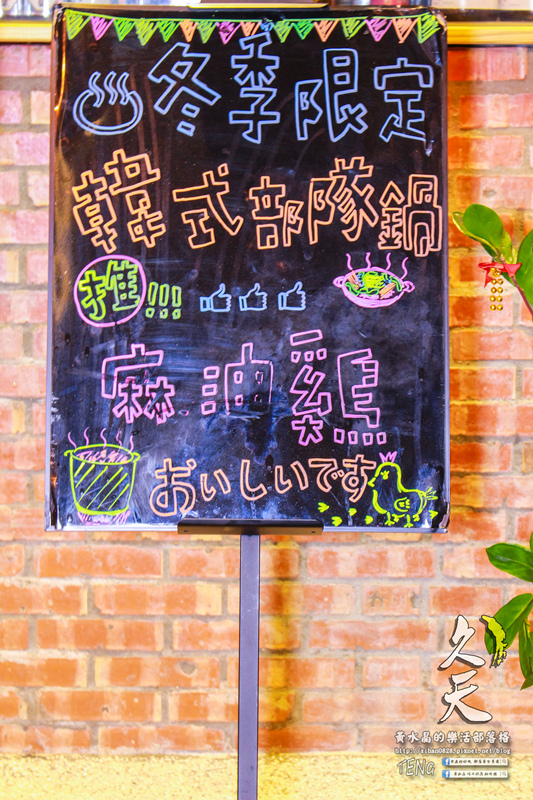 冬季限定
韓式部隊鍋
推!!!
麻油雞
おいしいです
久天
黃水晶的樂活部落格
http://siban0828.pixnet.net/blog
TENG